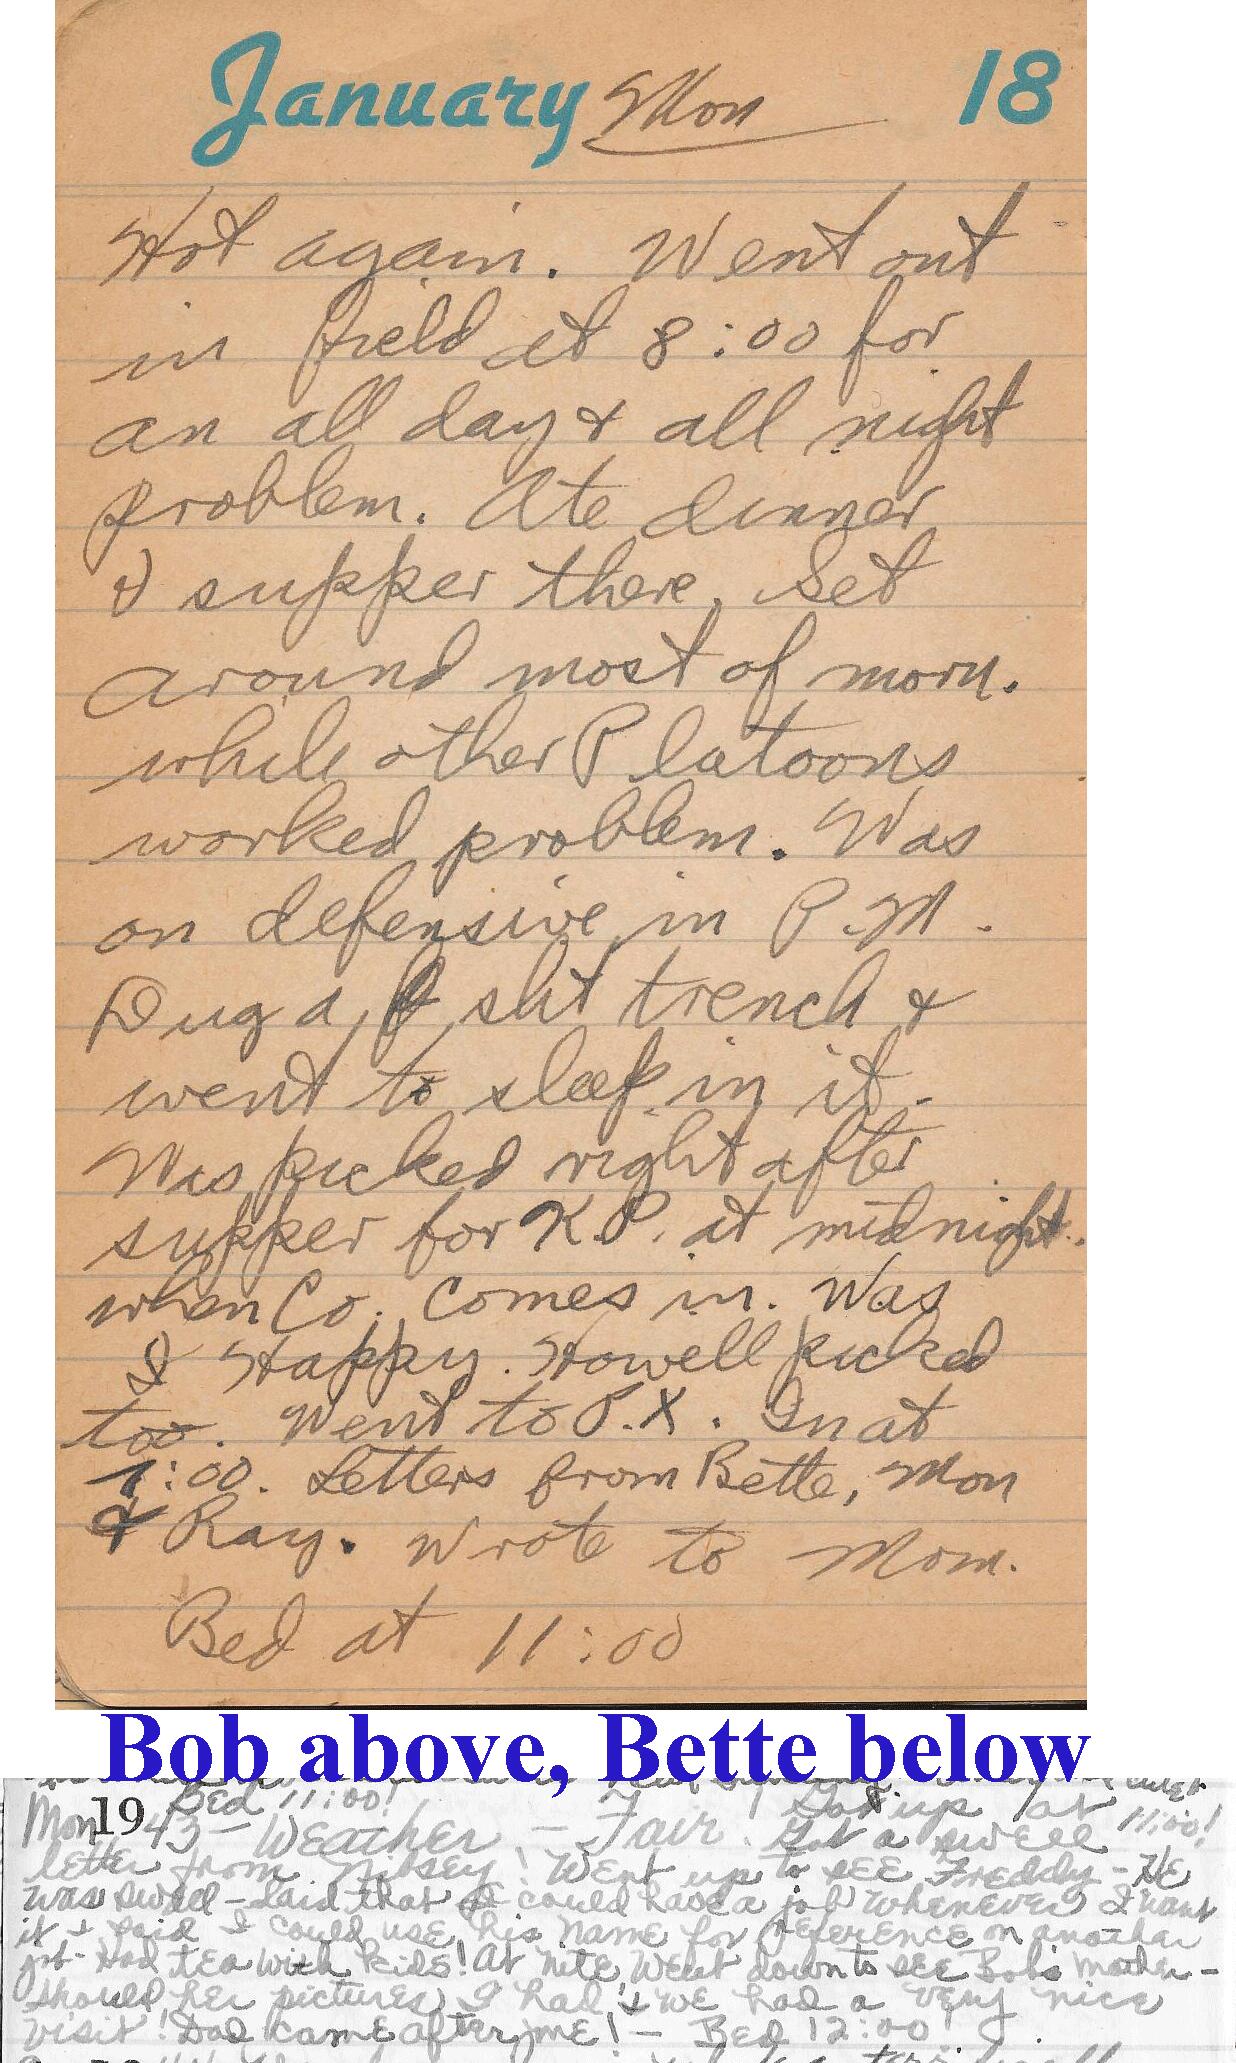 January Mon 18
Hot again. Went out
in field at 8:00 for
an all day & all night
problem. Ate dinner
& supper there. Set
around most of morn.
while other Platoons
worked problem. Was
on defensive in P.M.
Dug a slit trench &
went to sleep in it.
Was picked right after
supper for K.P. at midnight.
when Co. comes in. Was
I Happy. Howell picked
too. Went to P.X. In at
7:00. Letters from Bette, Mom
& Ray. Wrote to Mom.
Bed at 11:00
Bob above, Bette below
Bed 11:00!
Mon 1943 - Weather - Fair. Got up at 11:00!
Got a swell
letter from ! Went up to see Freddy - He
was swell - said that I could have a job whenever I want
it & said I could use his name for reference on another
job - Had tea with kids! At nite, Went down to see Bob's mother -
showed her pictures I had & we had a very nice
visit! Dad came after me! - Bed 12:00!